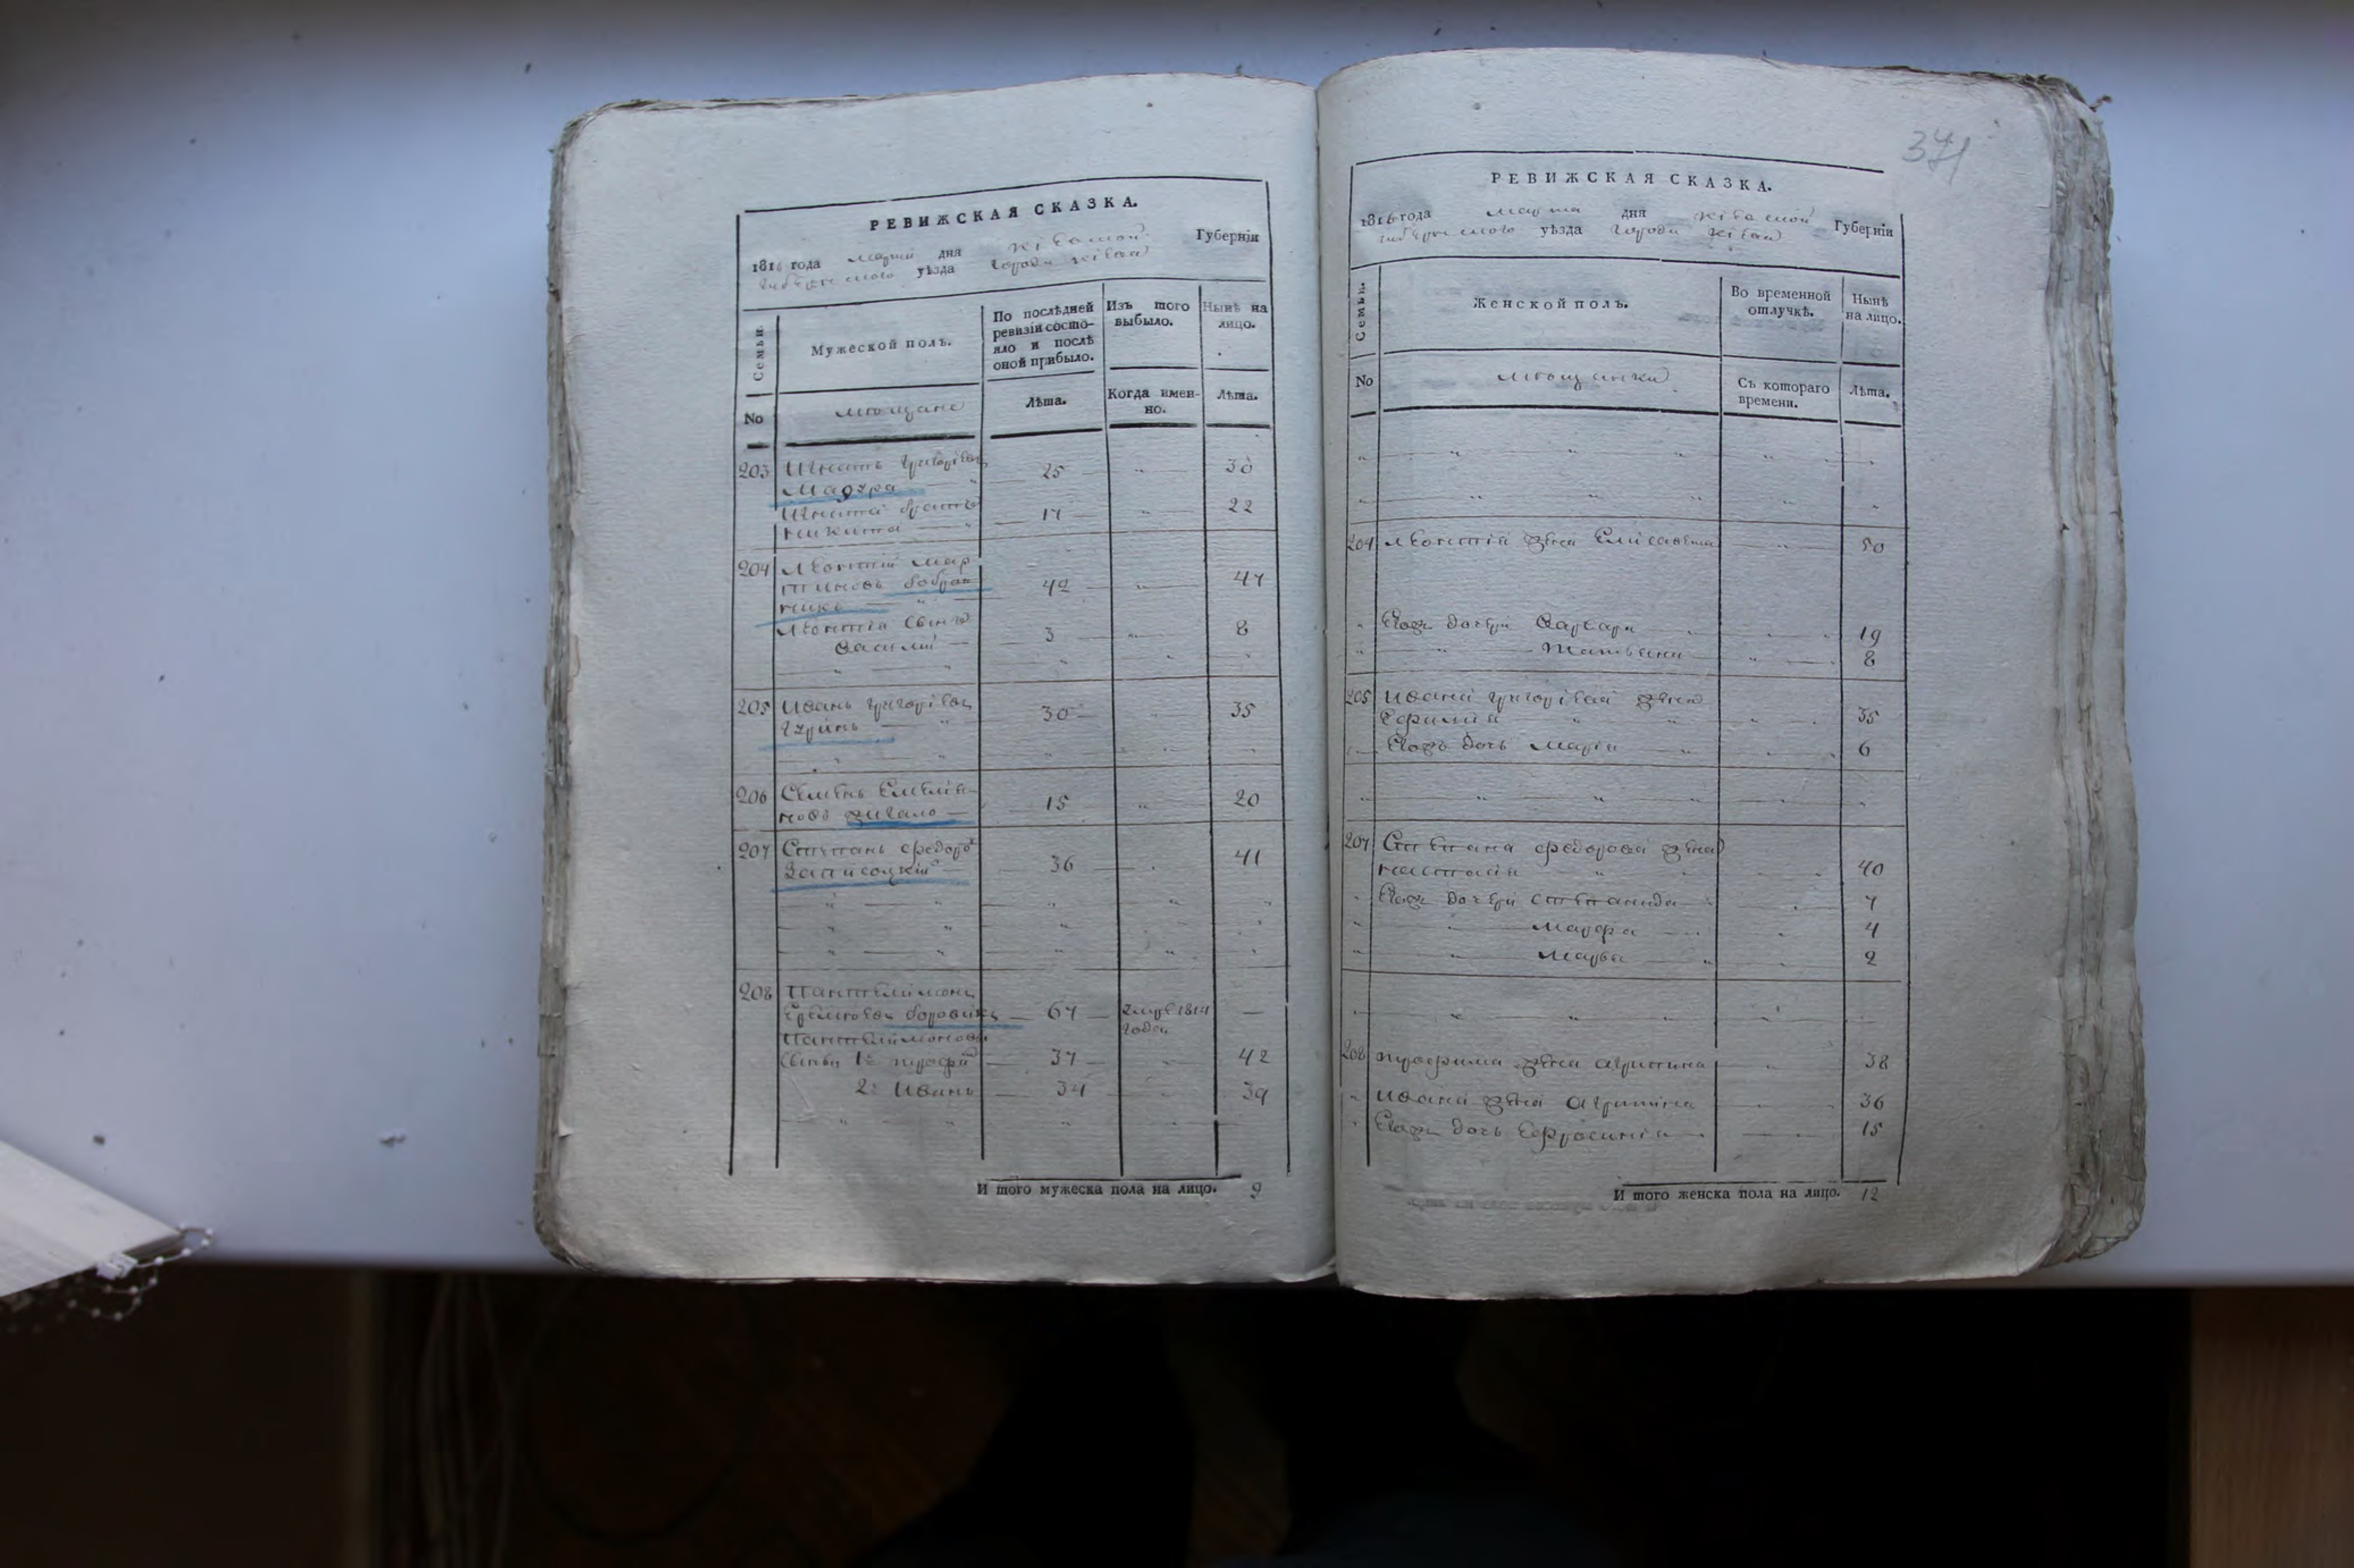 РЕВИЖСКАЯ СКАЗКА.
1816 года марта дня Кіевской Губерніи
уѣзда города Кіева
Семьи.
Мужеской полъ.
По послѣдней ревизіи состояло и послѣ оной прибыло.
Изъ того выбыло.
Нынѣ на лицо.
No
мещане
Лѣта.
Когда именно.
Лѣта.
203 Игнатъ Григорьевъ
Мазура 25 30
Игната братъ
Никита 17 22
204 Леонтій Мар
тиновъ Бобров
никъ 42 47
Леонтія сынъ
Василій 3 8
205 Иванъ Григорьевъ
30 35
206 Семенъ Емелія
новъ Жигало 15 20
207 Степанъ Федоро
Записоцкій 36 41
208 Пантелимонъ
Еремѣевъ Боровикъ 67 умре 1814
года
Пантелимонова
сыны 1й Трофи 37 42
2й Иванъ 34 39
И того мужеска пола на лицо. 9
371
РЕВИЖСКАЯ СКАЗКА.
1816 года марта дня Кіевской Губерніи
уѣзда города Кіева
Семьи.
Женской полъ.
Во временной отлучкѣ.
Нынѣ на лицо.
No
мещанки
Съ котораго времени.
Лѣта.
204 Леонтія жена Елисавета 50
Егож дочери Варвара 19
Татьяна 8
205 Ивана Григорьева жена
Ефимія 35
Егожъ дочь Марія 6
207 Степана Федорова жена
Настасія 40
Егож дочери Степанида 7
Марфа 4
Марья 2
208 Трофима жена Агрипина 38
Ивана жена Агрипина 36
Егож дочь Ефросинія 15
И того женска пола на лицо. 12